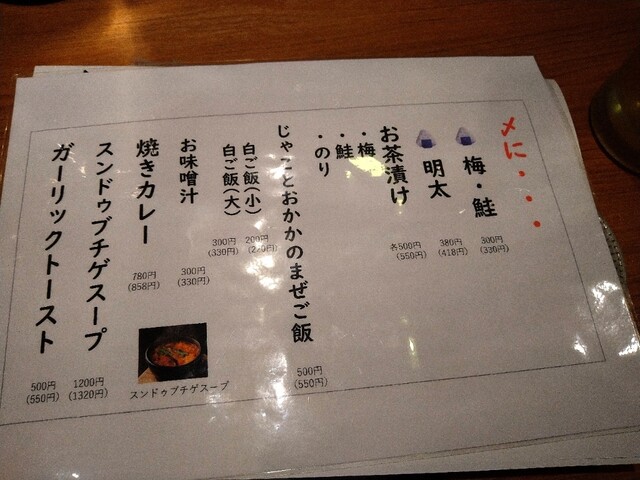 〆に・・・
🍙 梅・鮭
300円
(330円)
🍙 明太
380円
(418円)
お茶漬け
・梅
・鮭
・のり
各500円
(550円)
じゃことおかかのまぜご飯
500円
(550円)
白ご飯(小)
200円
(220円)
白ご飯(大)
300円
(330円)
お味噌汁
300円
(330円)
焼きカレー
780円
(858円)
スンドゥブチゲスープ
1200円
(1320円)
ガーリックトースト
500円
(550円)
スンドゥブチゲスープ